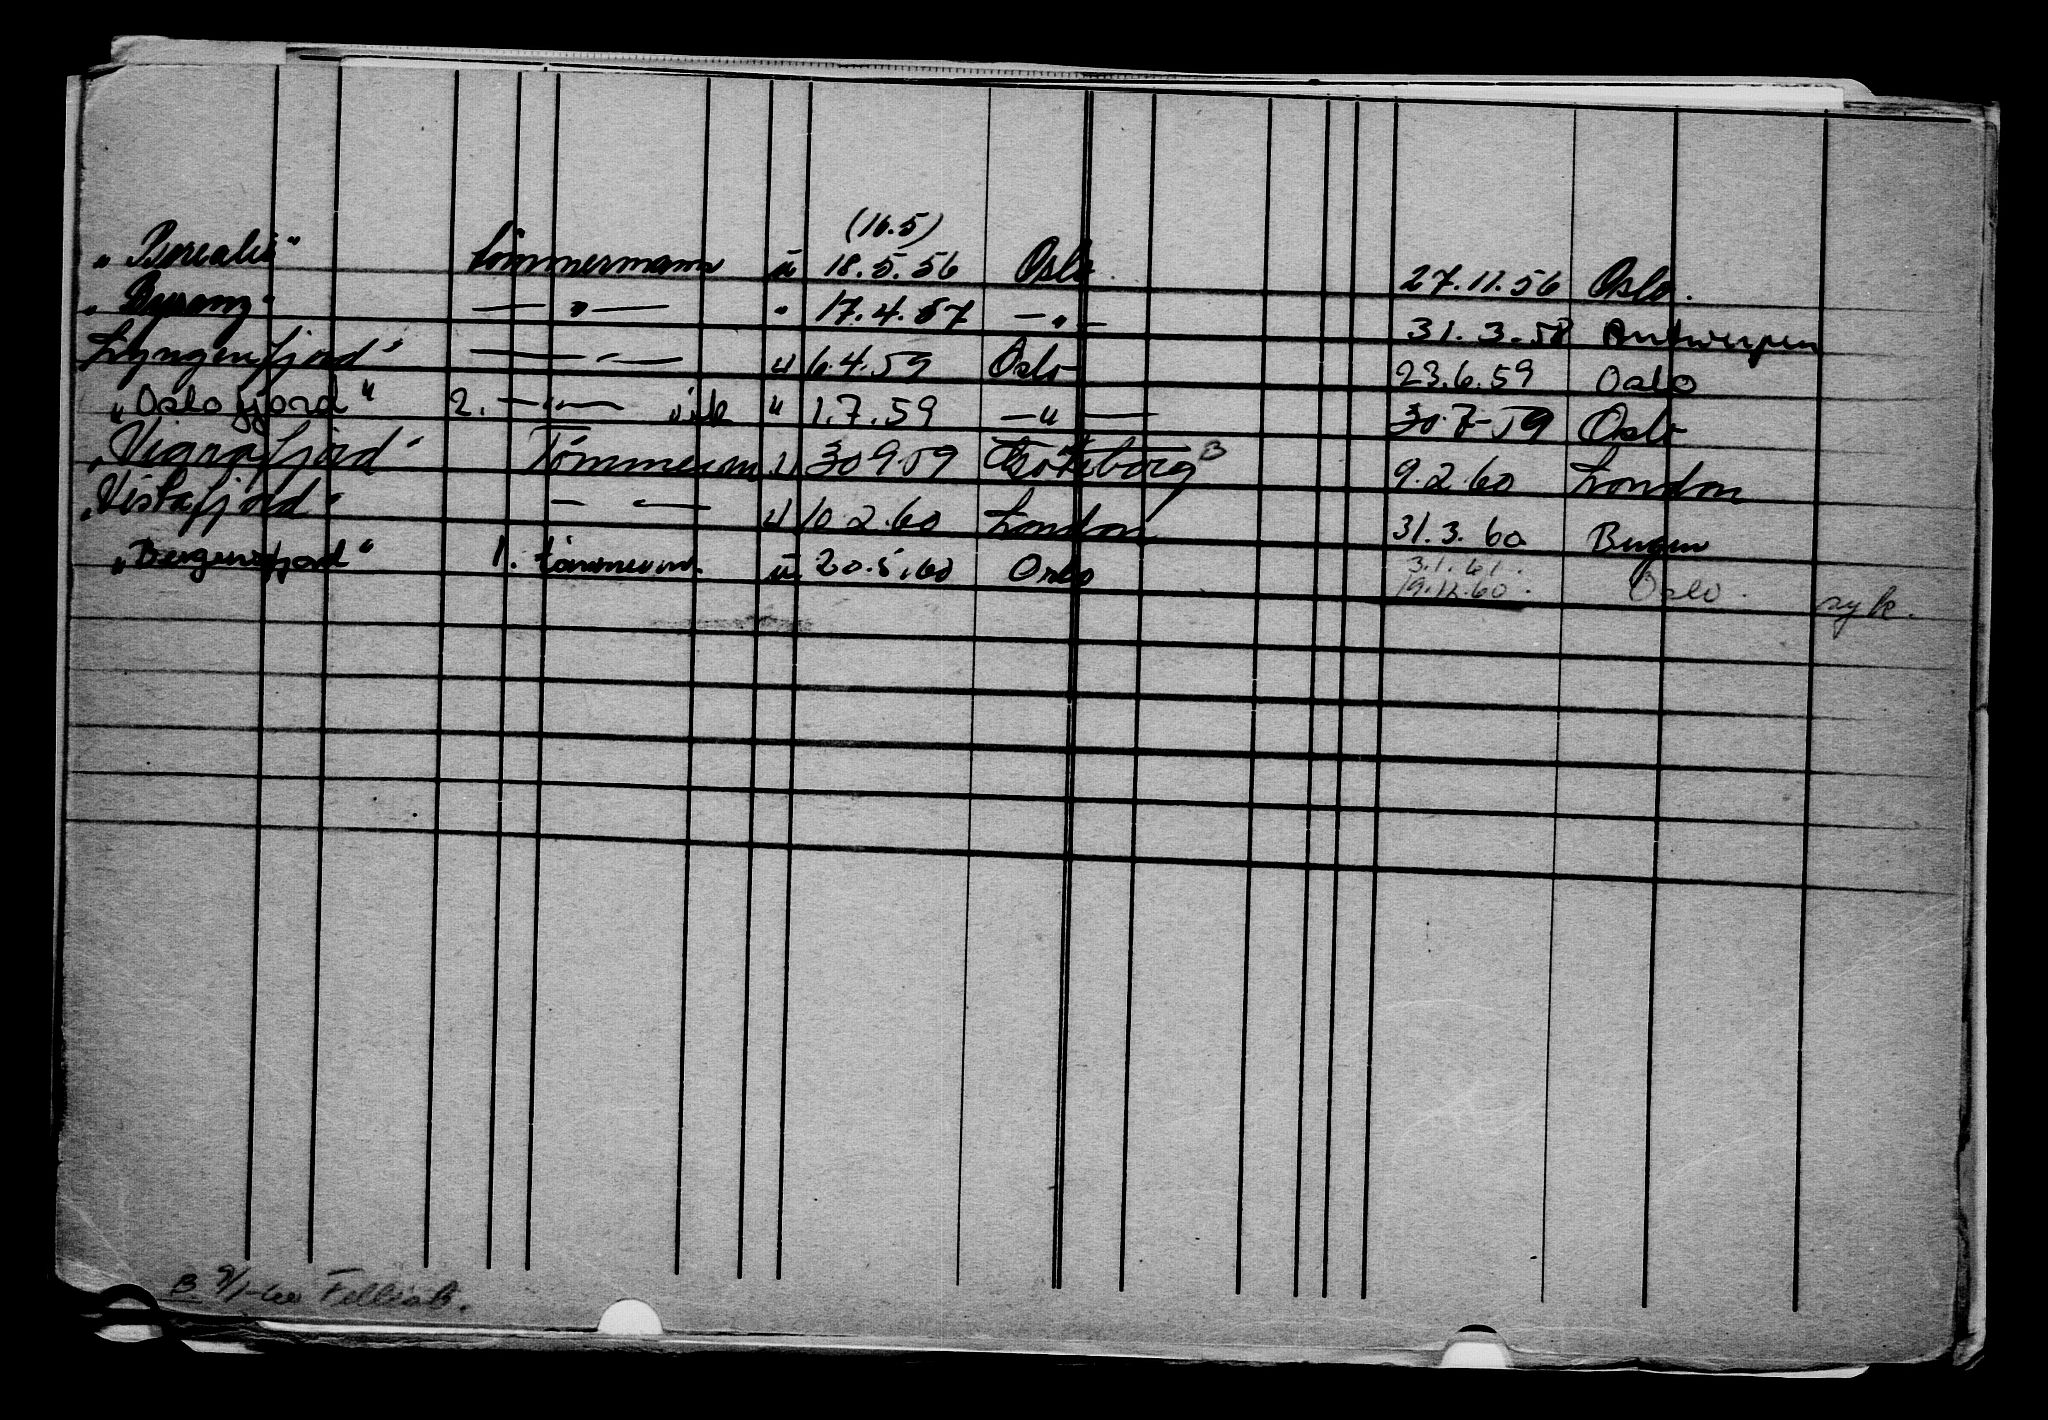 (16.5)
„Borealis" tömmermann u 18.5.56 Oslo. 27.11.56 Oslo.
„ — " — " 17.4.57 — „ — 31.3.58 Antwerpen
Lyngenfjord" — " — u 6.4.59 Oslo 23.6.59 Oslo
„Oslofjord" 2. — " — u 1.7.59 — " — 30.7-59 Oslo
„Vigrafjord" Tömmerm u 30 9.59 Göteborg B 9.2.60 London
„Vistafjord" — " — u 10.2.60 London 31.3.60 Bergen
„Bergensfjord" 1. tömmerm. u 20.5.60 Oslo 3.1.61.
19.12.60. Oslo. syk.
B 9/1-60